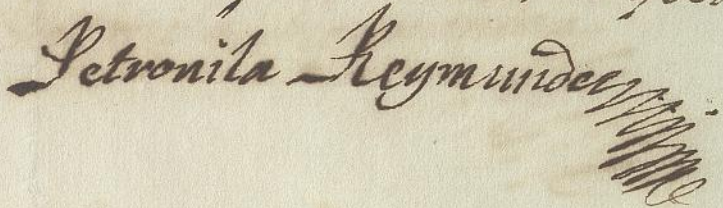 Petronila Reymundez